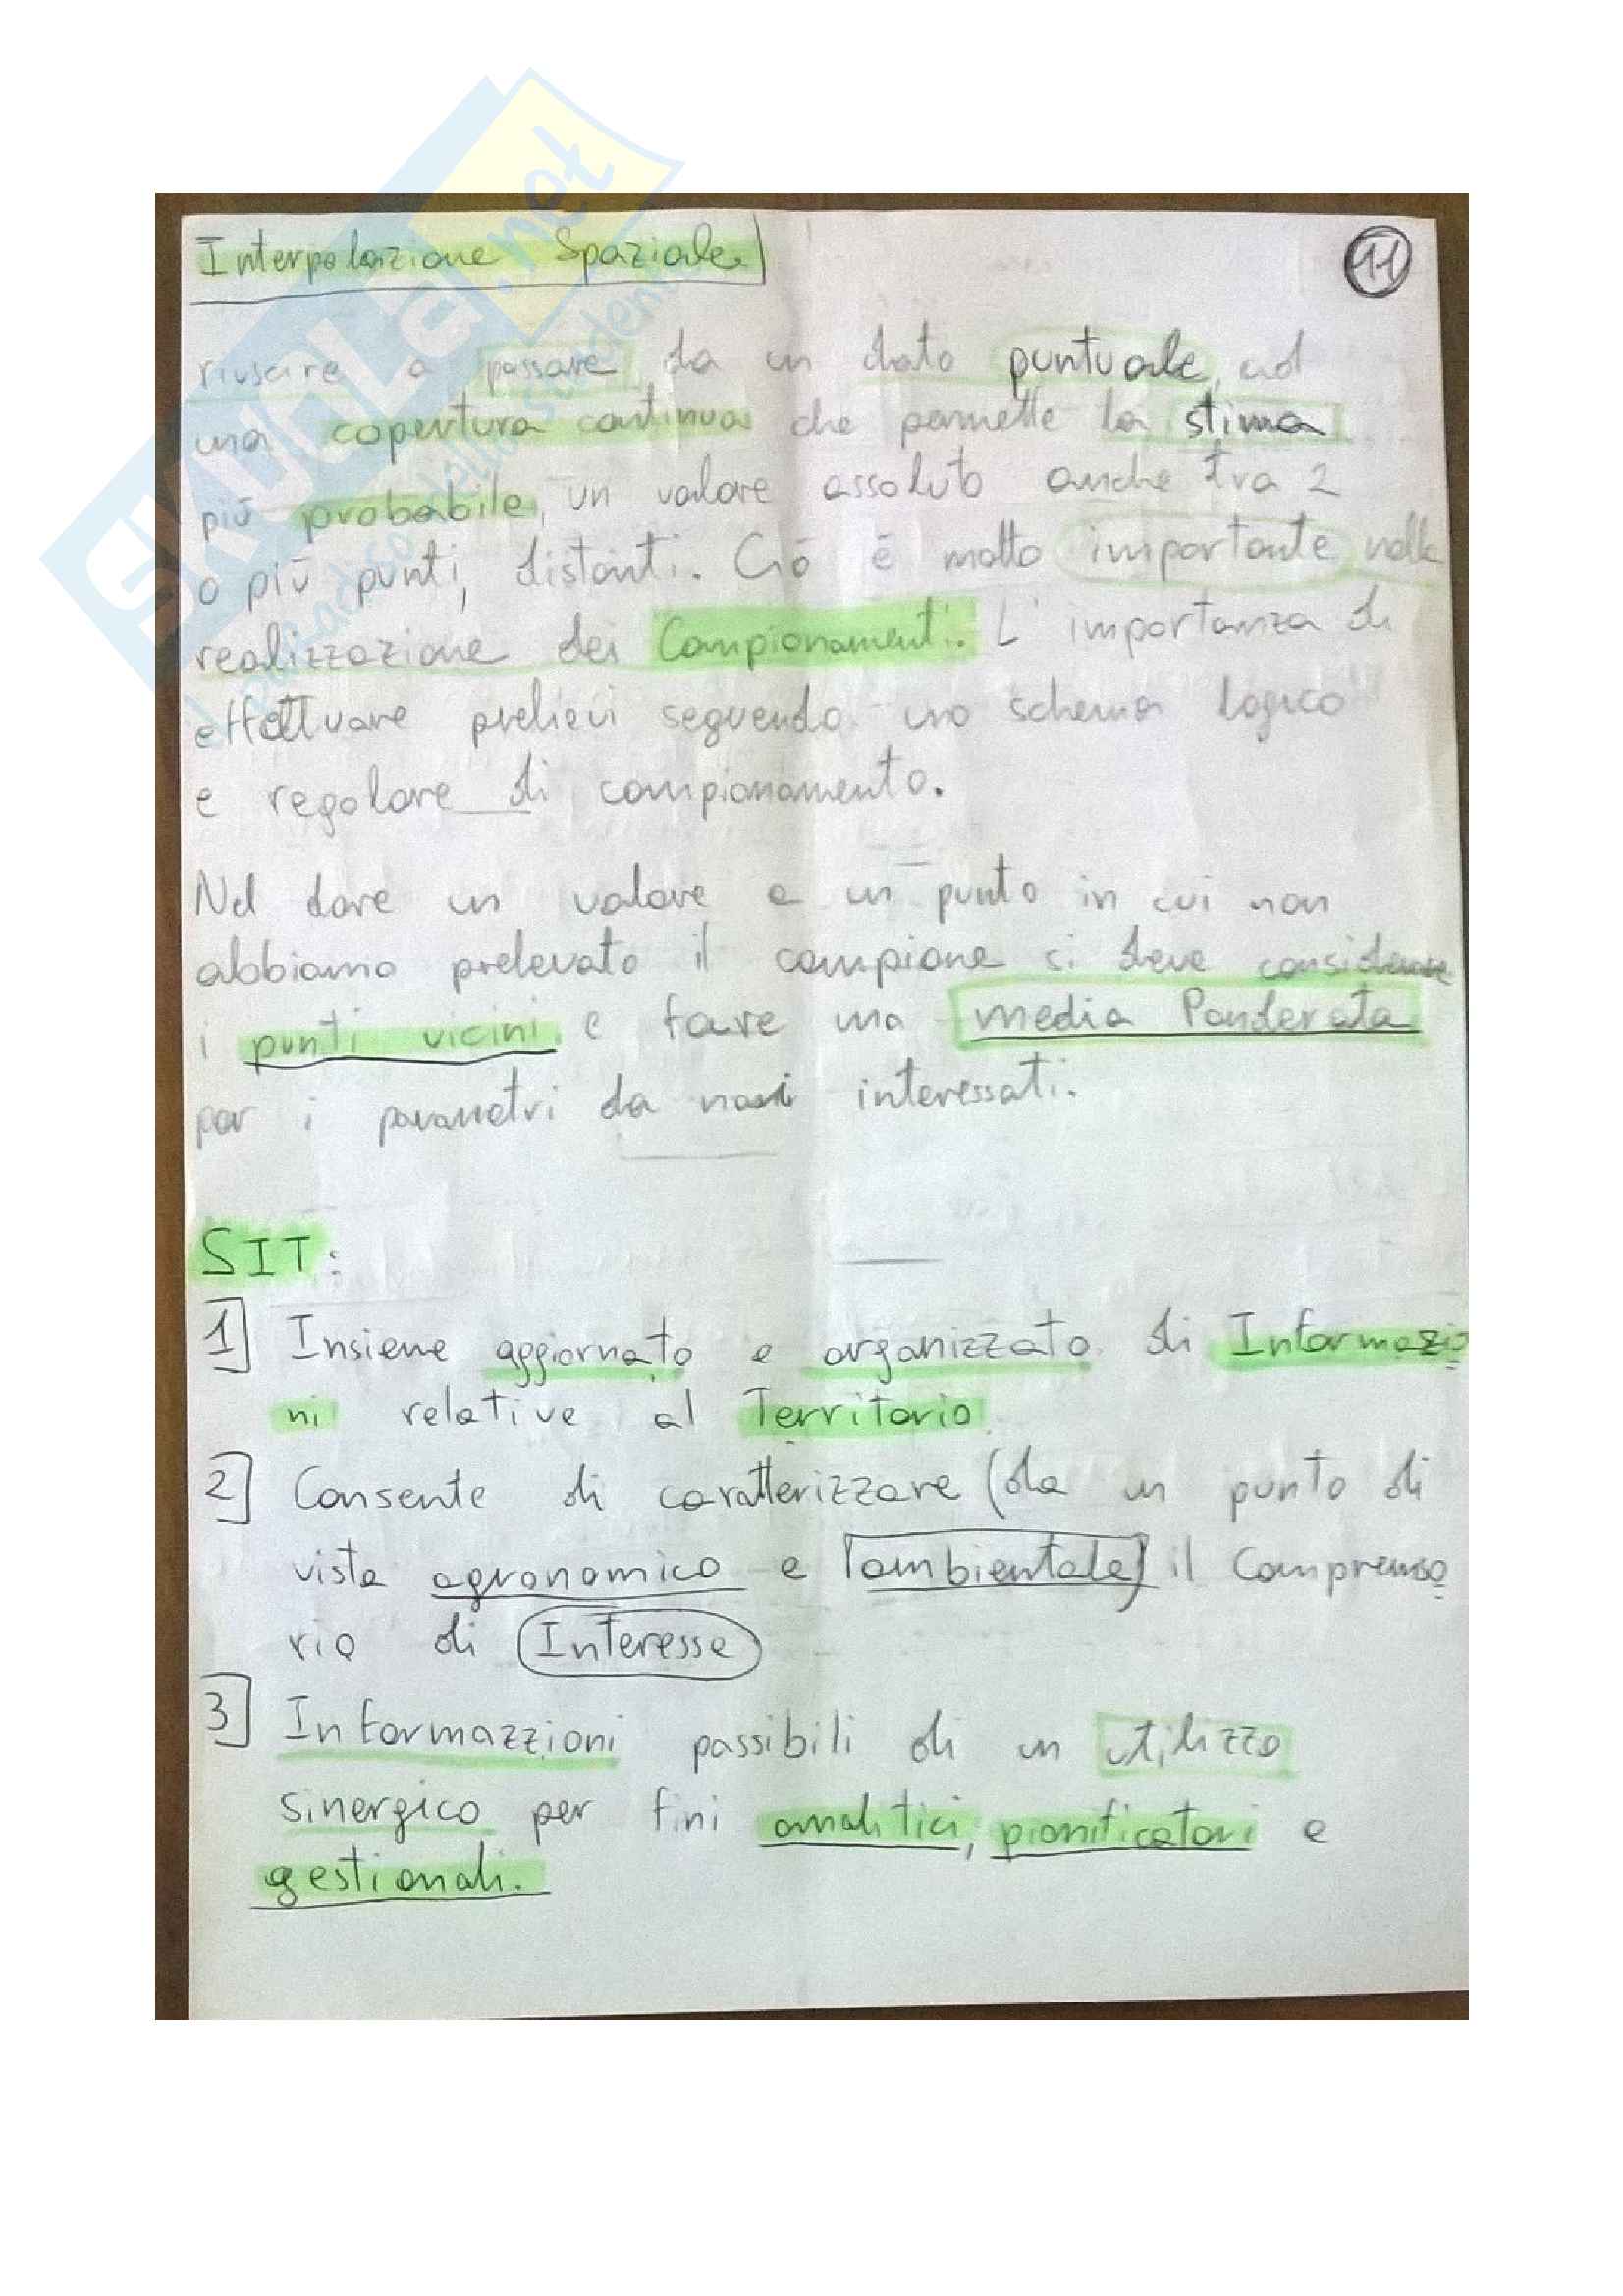 Interpolazione Spaziale
11
riuscire a passare da un dato puntuale, ad
una copertura continua che permette la stima
più probabile, un valore assoluto anche tra 2
o più punti, distanti. Ciò è molto importante nella
realizzazione dei Campionamenti. L'importanza di
effettuare prelievi seguendo uno schema logico
e regolare di campionamento.
Nel dare un valore a un punto in cui non
abbiamo prelevato il campione si deve considerare
i punti vicini e fare una media Ponderata
per i parametri da noi interessati.
SIT:
1] Insieme aggiornato e organizzato di Informazio
ni relative al Territorio
2] Consente di caratterizzare (da un punto di
vista agronomico e ambientale) il Comprenso
rio di Interesse
3] Informazzioni passibili di un utilizzo
sinergico per fini analitici, pianificatori e
gestionali.
SKUOLA.net